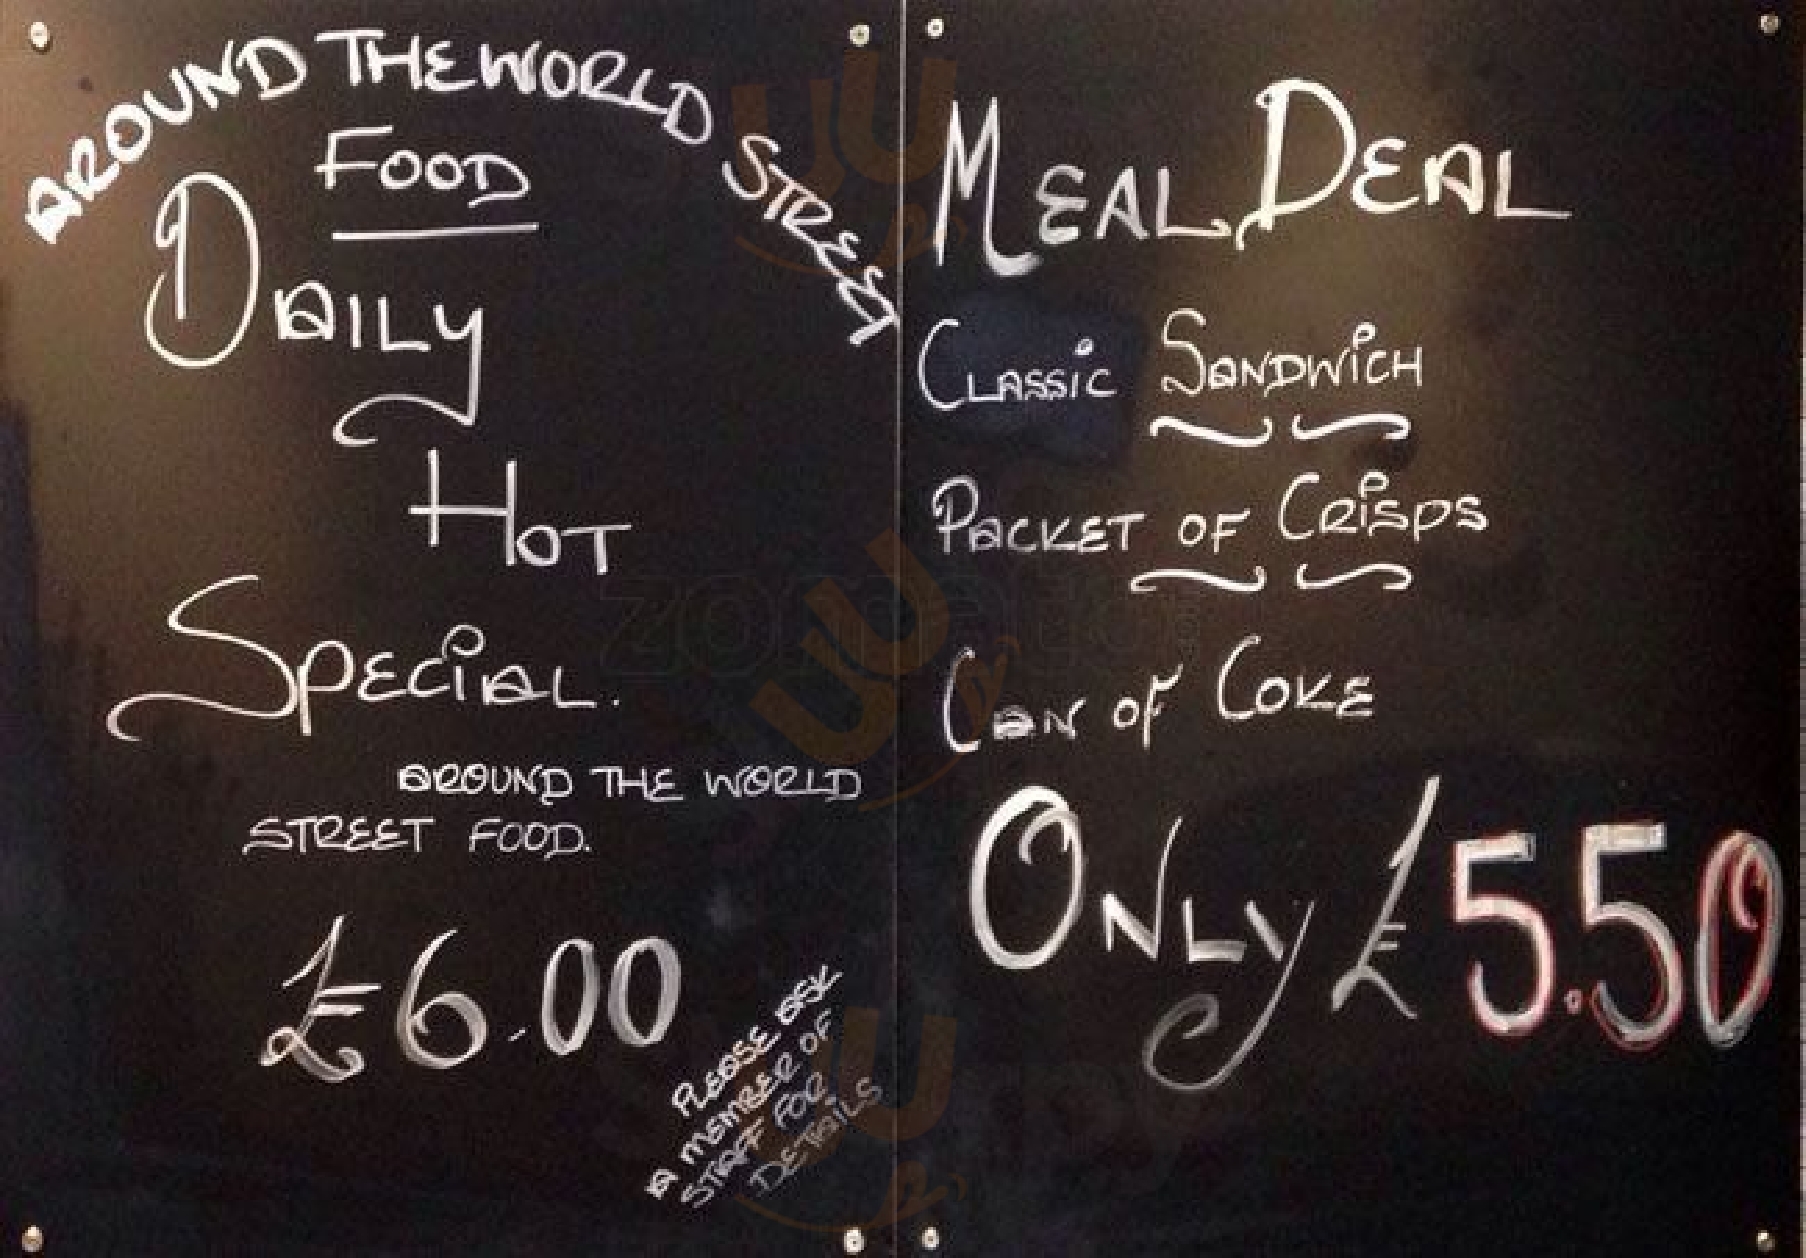 AROUND THE WORLD STREET
FOOD
DAILY
HOT
SPECIAL.
AROUND THE WORLD
STREET FOOD.
£6.00
PLEASE ASK
A MEMBER OF
STAFF FOR
DETAILS
MEAL DEAL
CLASSIC SANDWICH
PACKET OF CRISPS
CAN OF COKE
ONLY £5.50
zomato